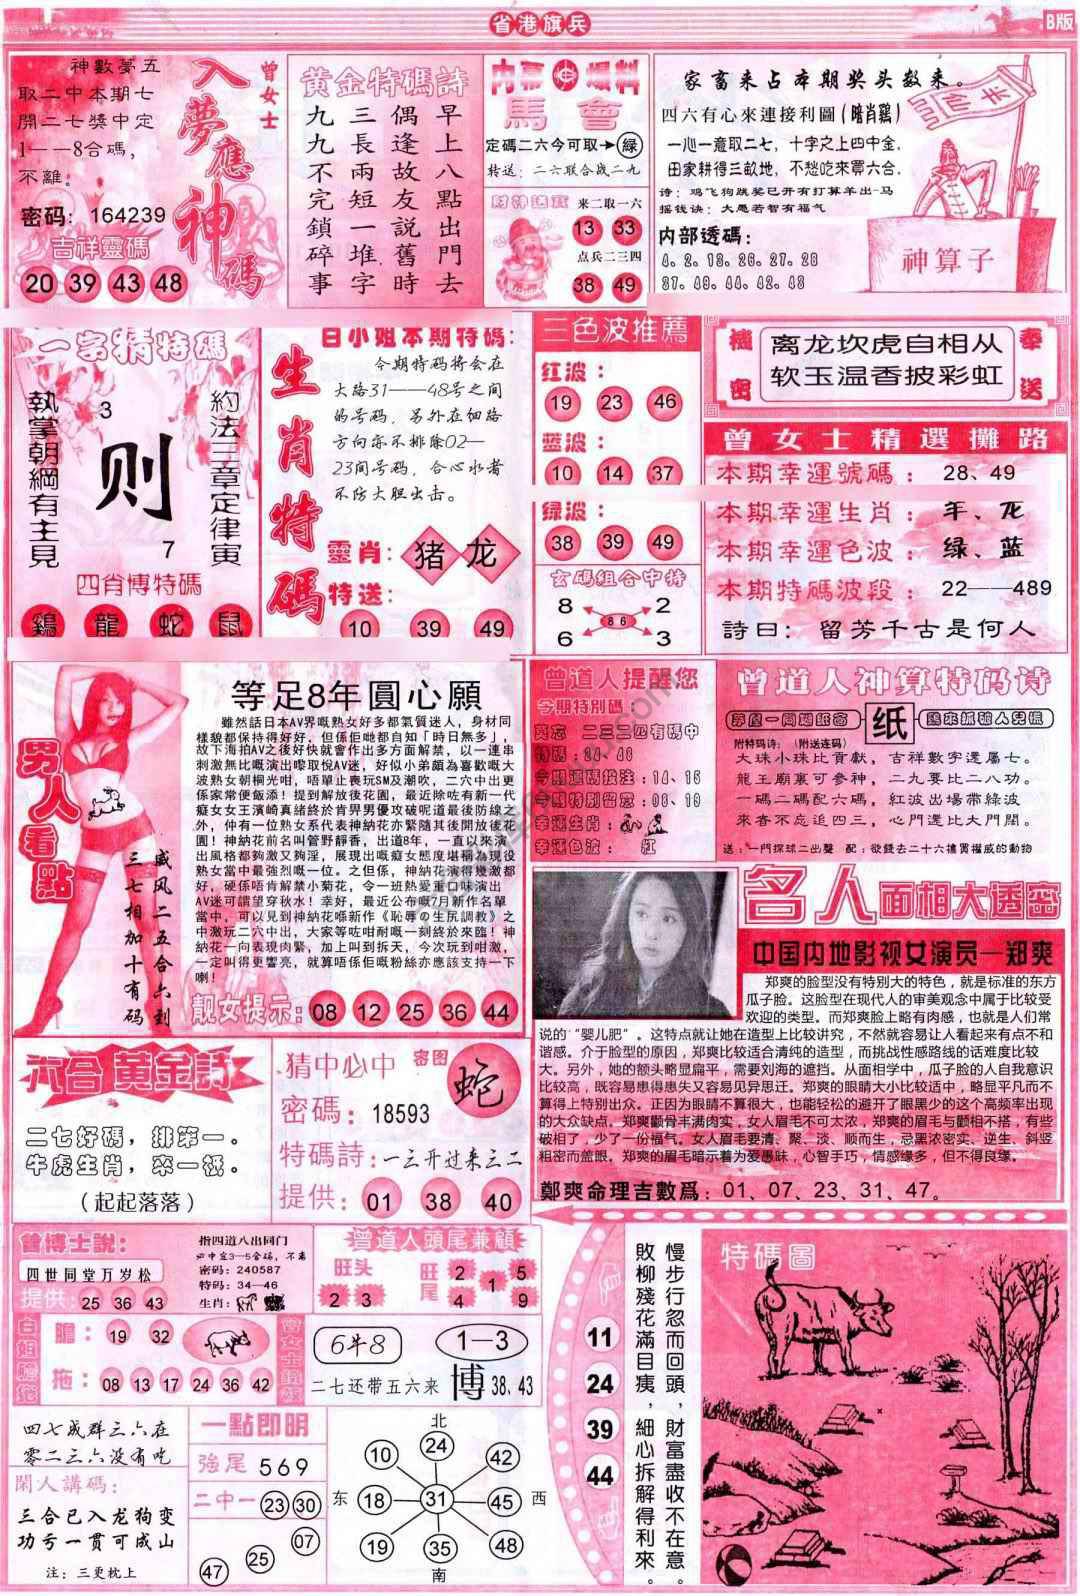 省港旗兵
B版
神數夢五
取二中本期七
開二七獎中定
1——8合碼,
不離。
密码: 164239
吉祥靈碼
20 39 43 48
曾女士
入夢應神碼
黄金特碼詩
早上八點出門去
偶逢故友説舊時
三長兩短一堆字
九九不完鎖碎事
内幕 爆料
馬會
定碼二六今可取→緑
转送:二六联合战二九
財神送寶
来二取一六
13 33
点兵二三四
38 49
家畜来占本期奖头数来。
四六有心來連接利圖(暗肖鷄)
一心一意取二七,十字之上四中金,
田家耕得三畝地,不愁吃來買六合。
诗:鸡飞狗跳奖已开有打算羊出-马
摇钱诀:大愚若智有福气
内部透碼:
4.2.18.26.27.28
37.40.44.42.48
神算子
一字精特碼
約法三章定律寅
執掌朝綱有主見
3
则
7
四肖博特碼
鷄 龍 蛇 鼠
生肖特碼
日小姐本期特碼:
今期特码将会在
大路31——48号之间
的号码,另外在细路
方向亦不排除02—
23间号码,合心水者
不防大胆出击。
靈肖: 猪 龙
特送:
10 39 49
三色波推薦
红波:
19 23 46
蓝波:
10 14 37
绿波:
38 39 49
玄碼組合中特
8 2
86
6 3
機密
奉送
离龙坎虎自相从
软玉温香披彩虹
曾女士精選攤路
本期幸運號碼: 28、49
本期幸運生肖: 羊、龙
本期幸運色波: 绿、蓝
本期特碼波段: 22——489
詩曰: 留芳千古是何人
男人看點
威风二五合六到
三七相加十有码
等足8年圓心願
雖然話日本AV界嘅熟女好多都氣質迷人,身材同
樣貌都保持得好好,但係佢哋都自知「時日無多」,
故下海拍AV之後好快就會作出多方面解禁,以一連串
刺激無比嘅演出嚟取悅AV迷,好似小弟頗為喜歡嘅大
波熟女朝桐光咁,唔單止喪玩SM及潮吹,二穴中出更
係家常便飯添!提到解放後花園,最近除咗有新一代
癡女女王濱崎真緒終於肯畀男優攻破呢道最後防線之
外,仲有一位熟女系代表神納花亦緊隨其後開放後花
園!神納花前名叫管野靜香,出道8年,一直以來演
出風格都夠激又夠淫,展現出嘅癡女態度堪稱為現役
熟女當中最強烈嘅一位。之但係,神納花演得幾激都
好,硬係唔肯解禁小菊花,令一班熱愛重口味演出
AV迷可謂望穿秋水!幸好,最近公布嘅7月新作名單
當中,可以見到神納花喺新作《恥辱の生尻調教》之
中激玩二穴中出,大家等咗咁耐嘅一刻終於來臨!神
納花一向表現肉緊,加上叫到拆天,今次玩到咁激,
一定叫得更響亮,就算唔係佢嘅粉絲亦應該支持一下
喇!
靚女提示: 08 12 25 36 44
曾道人提醒您
今期特別碼:
莫忘 二三二四有碼中
特碼:34、46
今期選碼投注:14、15
今期特别留意:08、18
幸运生肖:
幸運色波: 紅
曾道人神算特码诗
茅屋一間糊紙窗
纸
鷄來抓破人兒慌
附特码诗:(附送连码)
大珠小珠比貢獻,吉祥數字還屬七。
龍王廟裏可參神,二九要比二八功。
一碼二碼配六碼,紅波出場帶緑波
來者不忘追四三,心門還比大門開。
送:一門探球二出聲 配:欲錢去二十六擒買權威的動物
名人面相大透密
中国内地影视女演员—郑爽
郑爽的脸型没有特别大的特色,就是标准的东方
瓜子脸。这脸型在现代人的审美观念中属于比较受
欢迎的类型。而郑爽脸上略有肉感,也就是人们常
说的“婴儿肥”。这特点就让她在造型上比较讲究,不然就容易让人看起来有点不和
谐感。介于脸型的原因,郑爽比较适合清纯的造型,而挑战性感路线的话难度比较
大。另外,她的额头略显扁平,需要刘海的遮挡。从面相学中,瓜子脸的人自我意识
比较高,既容易患得患失又容易见异思迁。郑爽的眼睛大小比较适中,略显平凡而不
算得上特别出众。正因为眼睛不算很大,也能轻松的避开了眼黑少的这个高频率出现
的大众缺点。郑爽颧骨丰满肉实,女人眉毛不可太浓,郑爽的眉毛与颧相不搭,有些
破相了,少了一份福气。女人眉毛要清、聚、淡、顺而生,忌黑浓密实、逆生、斜竖
粗密而盖眼。郑爽的眉毛暗示着为爱愚昧,心智手巧,情感缘多,但不得良缘。
鄭爽命理吉數爲:01、07、23、31、47。
六合黄金詩
二七好碼,排第一。
牛虎生肖,卒一祗。
(起起落落)
猜中必中
密图
蛇
密碼:18593
特碼詩:一三开过来三二
提供: 01 38 40
曾博士説:
四世同堂万岁松
提供: 25 36 43
指四道八出同门
必中定3—5合码,不离
密码:240587
特码:34—46
生肖:
曾道人頭尾兼顧
旺头
2 3
旺尾
2 5
1
4 9
白姐膽拖
膽: 19 32
拖: 08 13 17 24 36 42
6牛8
1—3
二七还带五六来 博 38、43
四七成群三六在
零二三六没有吃
閑人講碼:
三合已入龙狗变
功亏一贯可成山
注:三更枕上
一點即明
強尾 569
二中一 23 30
07
25
47
北
24
10 42
东 18 31 45 西
19 48
35
南
11
24
39
44
慢步行忽而回頭,財富盡收不在意。
敗柳殘花滿目痍,細心拆解得利來。
特碼圖